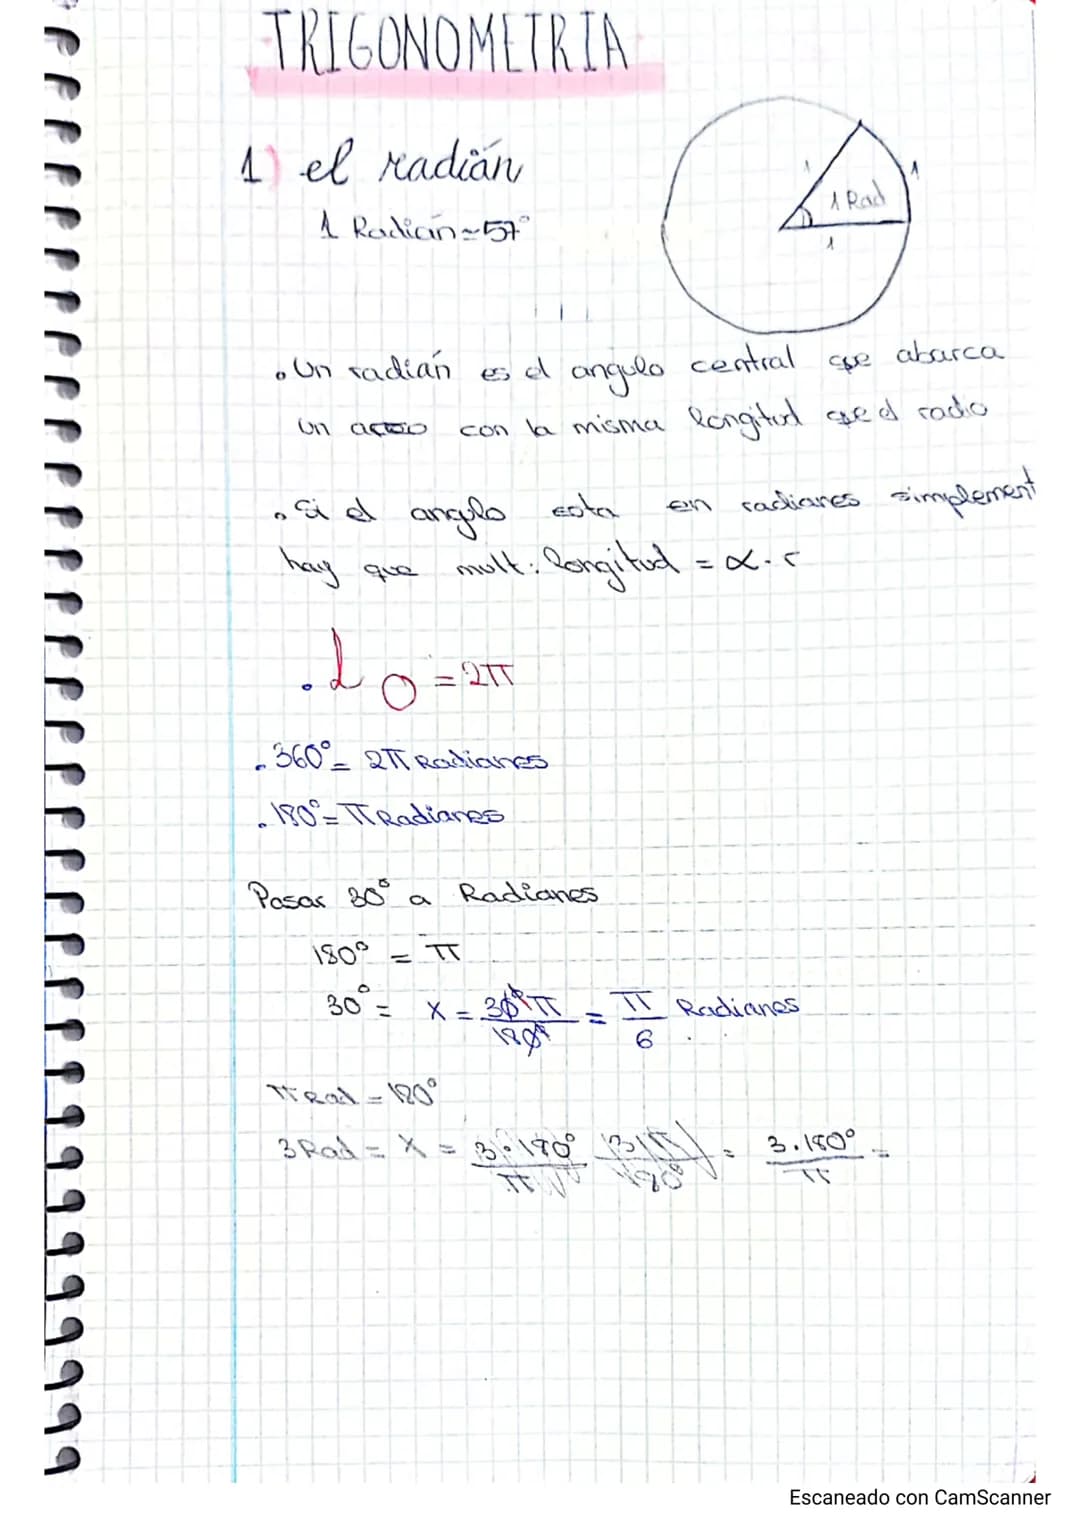 TRIGONOMETRIA
1) el radián
1 Radián ≃ 57°
1
1 Rad
1
1
. Un radián es el angulo central que abarca
un arco con la misma longitud que el radio
. Si el angulo esta en radianes simplement
hay que mult: longitud = α · r
. L O = 2π
. 360° = 2π Radianes
. 180° = π Radianes
Pasar 30° a Radianes
180° = π
30° = x = 30° π / 180° = π / 6 Radianes
π Rad = 180°
3 Rad = x = 3 · 180° / π = 3 · 180° / π =
Escaneado con CamScanner